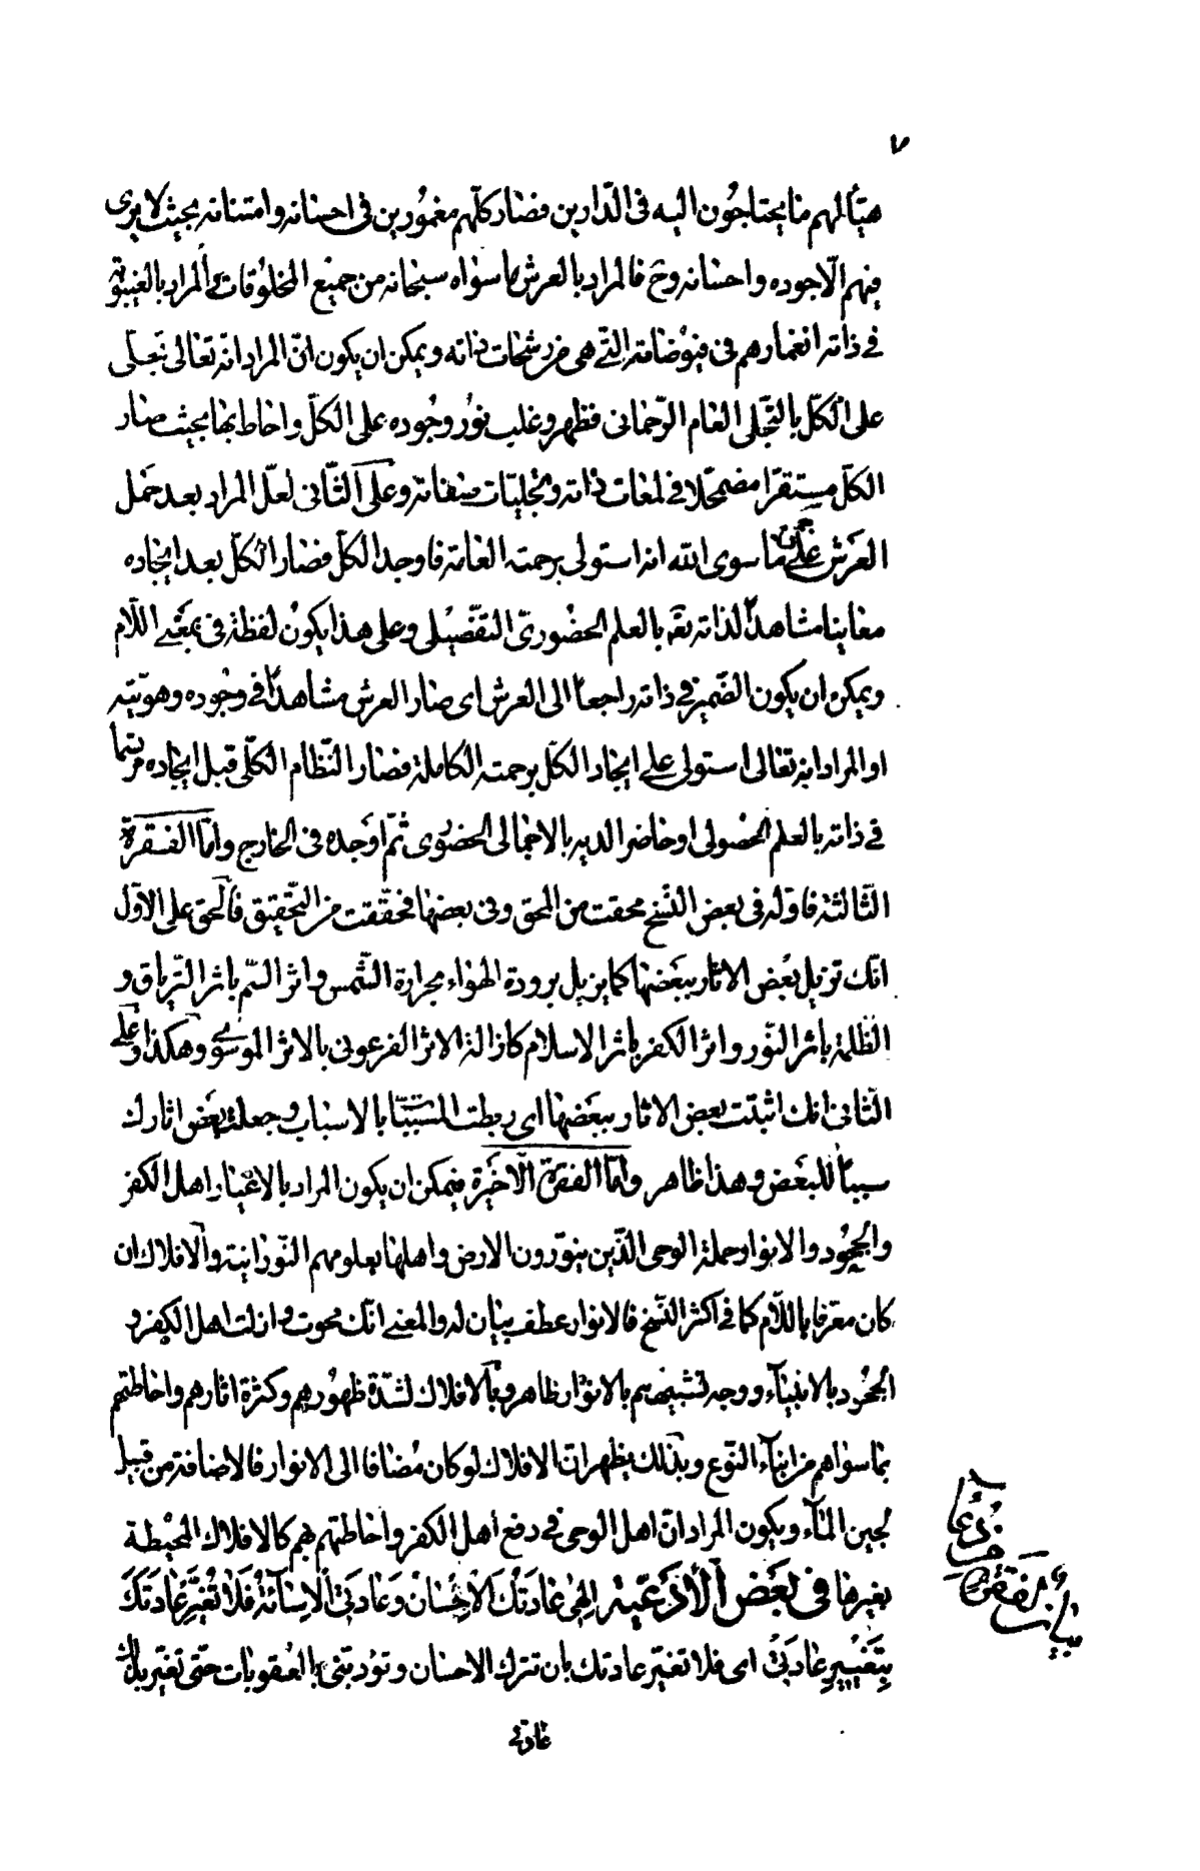 ٧
هيّألهم ما يحتاجون اليه فى الدّارين فصار كلّهم مغمورين فى احسانه وامتنانه بحيث لا يرى
فيهم الّا جوده واحسانه وح فالمراد بالعرش ما سواه سبحانه من جميع المخلوقات والمراد بالغيبوبة
فى ذاته انغمارهم فى فيوضاته التى هى من رشحات ذاته ويمكن ان يكون انّ المراد انّه تعالى تجلّى
على الكلّ بالتجلّى العام الرّحمانى فظهر وغلب نور وجوده على الكلّ واحاط بها بحيث صار
الكلّ مستقرا مضمحلا فى لمعات ذاته وتجليّات صفاته وعلى الثّانى لعلّ المراد بعد حمل
العرش على ما سوى الله انه استولى برحمته العامة فاوجد الكلّ فصار الكلّ بعد ايجاده
معاينا مشاهداً لذاته بالعلم الحضورىّ التفصيلى وعلى هذا يكون لفظة فى بمعنى اللّام
ويمكن ان يكون الضّمير فى ذاته راجعاً الى العرش اى صار العرش مشاهداً فى وجوده وهويّته
او المراد انه تعالى استولى على ايجاد الكلّ برحمته الكاملة فصار النّظام الكلّى قبل ايجاده مرتسما
فى ذاته بالعلم الحصولى او حاضر الديه بالاجمالى الحضورى ثمّ اوجده فى الخارج وامّا الفقرة
الثّالثة فاوله فى بعض النّسخ محقت من المحق وفى بعضها فحقّقت من التّحقيق فالحق على الاوّل
انّك تزيل بعض الاثار ببعضها كما يزيل برودة الهواء بحرارة الشّمس واثر السّم باثر التّرياق و
الظّلمة باثر النّور واثر الكفر باثر الاسلام كازالة الاثر الفرعونى بالاثر الموسوى وهكذا وعلى
الثّانى انك اثبتّت بعض الاثار ببعضها اى ربطت المسبّبات بالاسباب وجعلت بعض اثارك
سبباً للبعض وهذا ظاهر وامّا الفقرة الاخيرة فيمكن ان يكون المراد بالاغيار اهل الكفر
والجحود والانوار حملة الوحى الّذين ينوّرون الارض واهلها بعلومهم النّورانية والافلاك ان
كان معرّفا باللّام كما فى اكثر النّسخ فالانوار عطف بيان له والمعنى انّك محوت وازلت اهل الكفر و
الجحود بالانبيآء ووجه تشبيههم بالانوار ظاهر وبالافلاك لشدّة ظهورهم وكثرة اثارهم واحاطتهم
بما سواهم من ابنآء النّوع وبذلك يظهر ان الافلاك لو كان مضافا الى الانوار فالاضافة من قبيل
لجين المآء ويكون المراد انّ اهل الوحى فى دفع اهل الكفر واحاطتهم بهم كالافلاك المحيطة
بغيرها فى بعض الأدعية الهى عادتك الاحسان وعادتى الاسائة فلا تغيّر عادتك
بتغيير عادتى اى فلا تغيّر عادتك بان تترك الاحسان وتؤدبنى بالعقوبات حتى تغير بذلك
عادتى
بيان فقرة
من دعآء